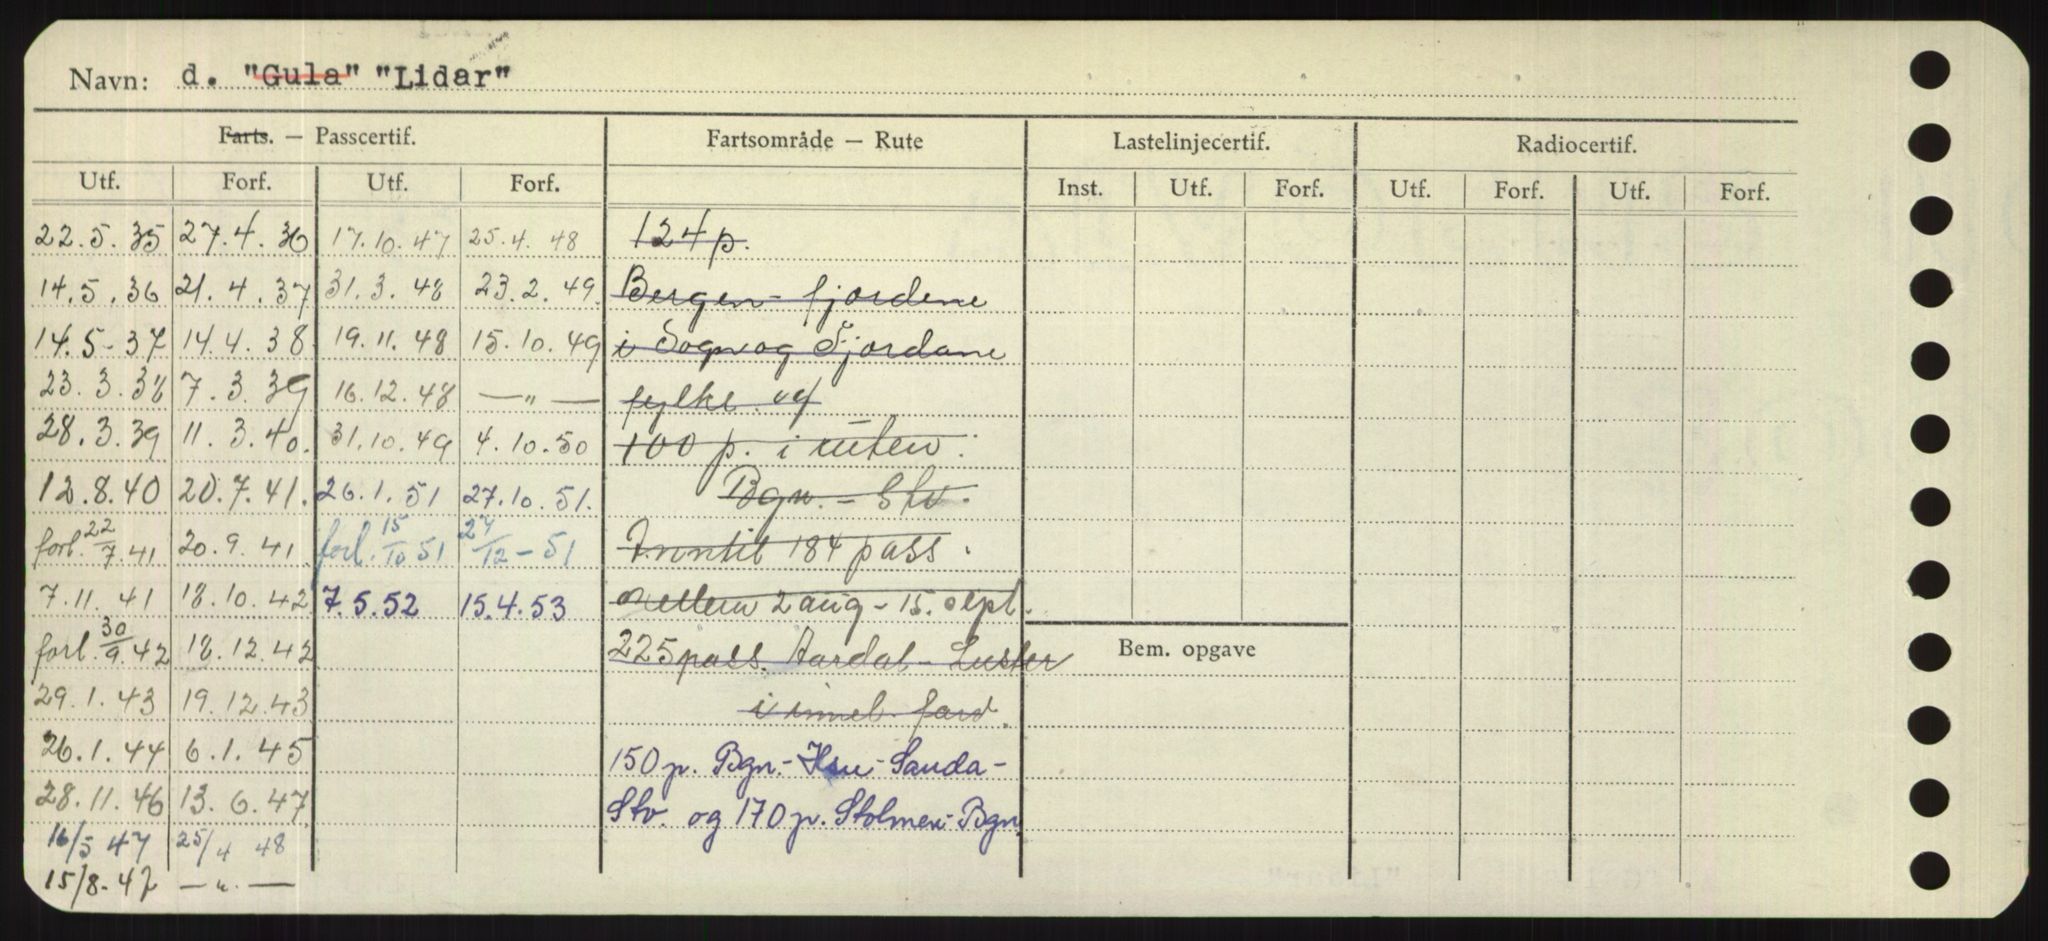 Navn: d. "Gula" "Lidar"
Farts. — Passcertif. Fartsområde — Rute Lastelinjecertif. Radiocertif.
Utf. Forf. Utf. Forf. Inst. Utf. Forf. Utf. Forf. Utf. Forf.
22.5.35 27.4.36 17.10.47 25.4.48 124 p.
14.5.36 21.4.37 31.3.48 23.2.49. Bergen - fjordene
14.5-37 14.4.38 19.11.48 15.10.49 i Sogn og Fjordane
23.3.38 7.3.39 16.12.48 —"— fylke. og
28.3.39 11.3.40. 31.10.49 4.10.50 100 p. i ruten:
12.8.40 20.7.41. 26.1.51 27.10.51. Bgn. - Stv.
forl. 22/7.41 20.9.41 forl. 15/10 51 27/12-51 Inntil 184 pass.
7.11.41 18.10.42 7.5.52 15.4.53 mellem 2 aug - 15. sept.
forl. 30/9.42 18.12.42 225 pass. Aardal - Luster Bem. opgave
29.1.43 19.12.43 i innel. fard.
26.1.44 6.1.45 150 p. Bgn.- Hsu - Sauda -
28.11.46 13.6.47 Stv. og 170 p. Stolmen - Bgn.
16/5 47 25/4 48
15/8-47 —"—